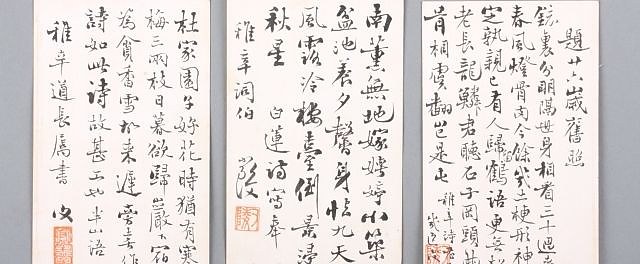 題廿六歲舊照
鏡裏分明隔世身相看三十過
春風燈骨肉今餘幾土梗形神
定孰親已有人歸鶴語更無
老長龍鱗君聽石子岡頭
肯相虞翻豈是屯
稚辛詩
南薰無地嫁娉婷小築
盆池養夕馨身怯九天
風露冷樓臺倒景浸
秋星 白蓮詩寫奉
稚辛詞伯 嚴復
杜家園子好花時猶有寒
梅三兩枝日暮欲歸巖下宿
為貪香雪故來遲 喜作
詩如此詩故甚工也半山語
稚辛道長屬書 復